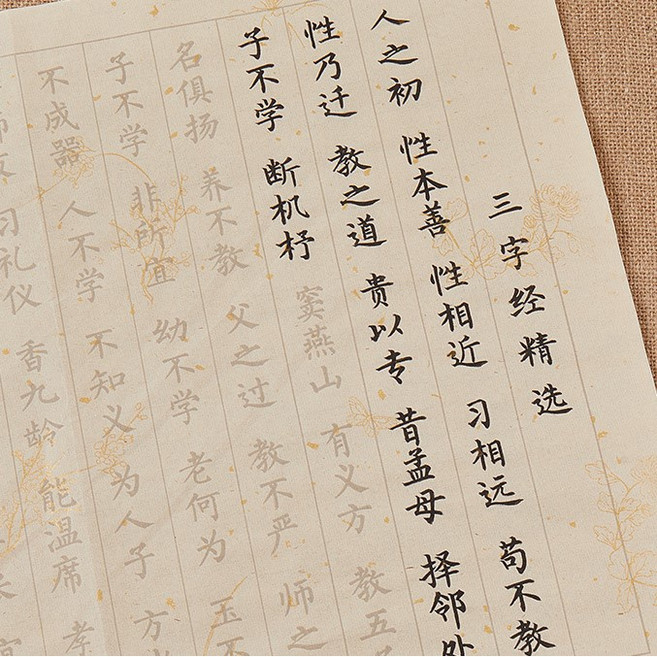 三字经精选
人之初 性本善 性相近 习相远 苟不教
性乃迁 教之道 贵以专 昔孟母 择邻处
子不学 断机杼 窦燕山 有义方 教五
名俱扬 养不教 父之过 教不严 师之
子不学 非所宜 幼不学 老何为 玉不
不成器 人不学 不知义 为人子 方
师友 习礼仪 香九龄 能温席 孝